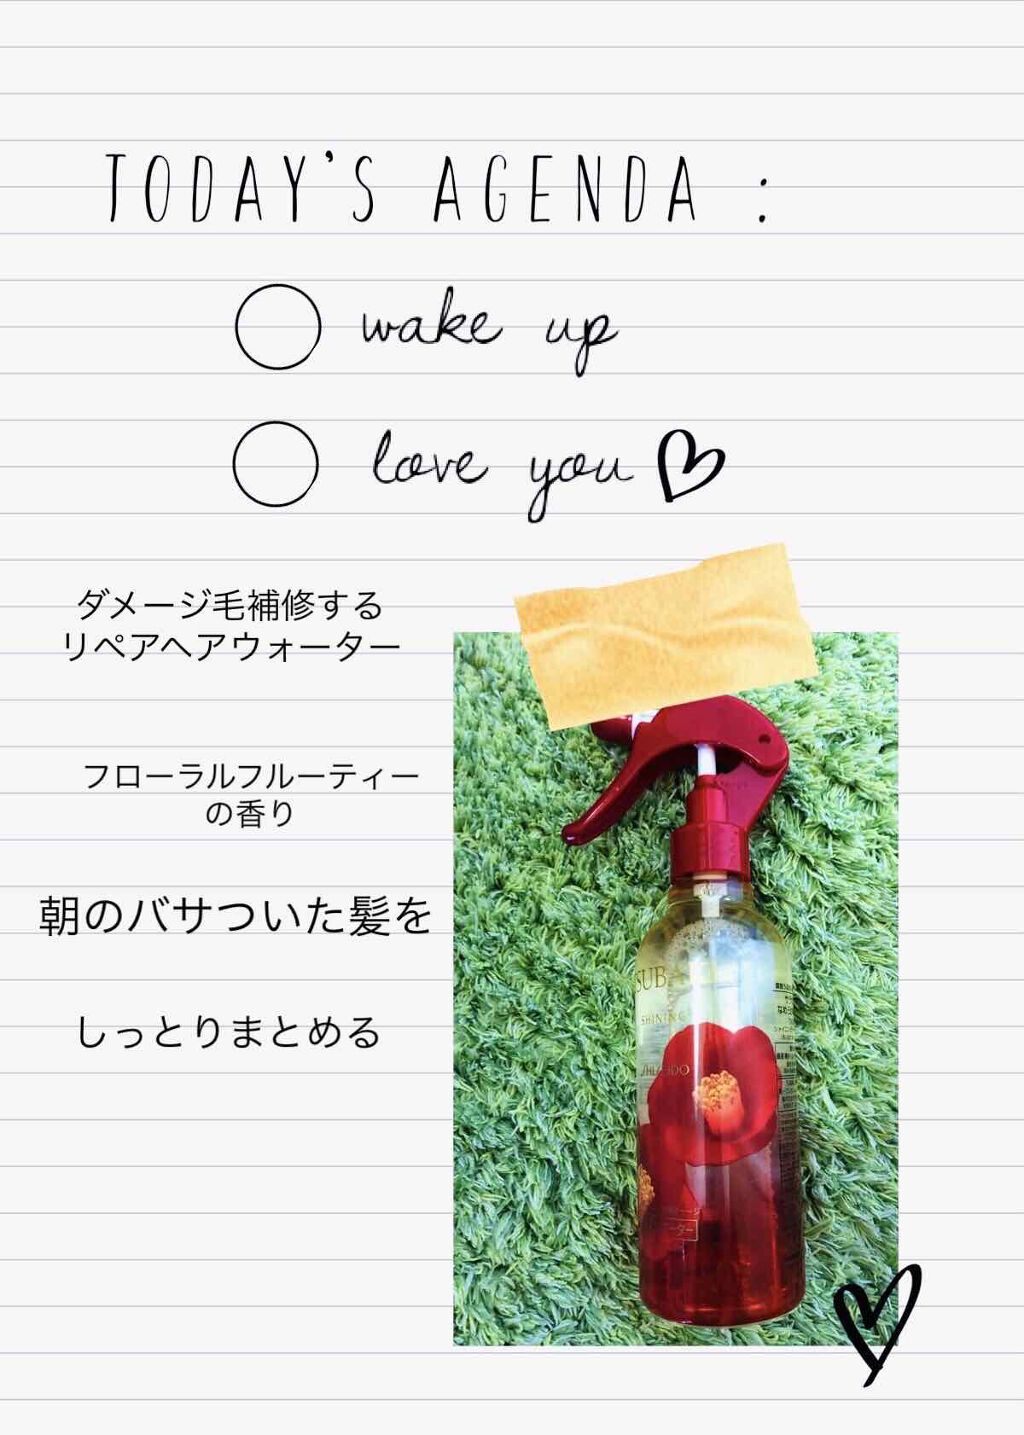 TODAY'S AGENDA :
wake up
love you
ダメージ毛補修する
リペアヘアウォーター
フローラルフルーティー
の香り
朝のバサついた髪を
しっとりまとめる
SUB
SHINING